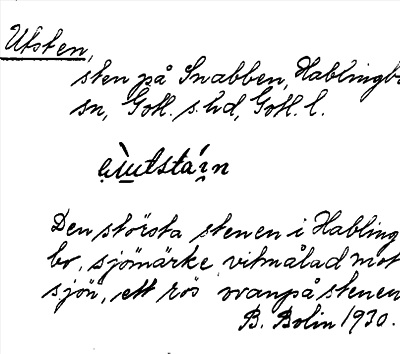 Utsten,
sten på Snabben, Hablingbo
sn, Gotl. s. hd, Gotl. l.
Den största stenen i Habling-
bo, sjömärke, vitmålad mot
sjön, ett rös ovanpå stenen
B. Bolin 1930.